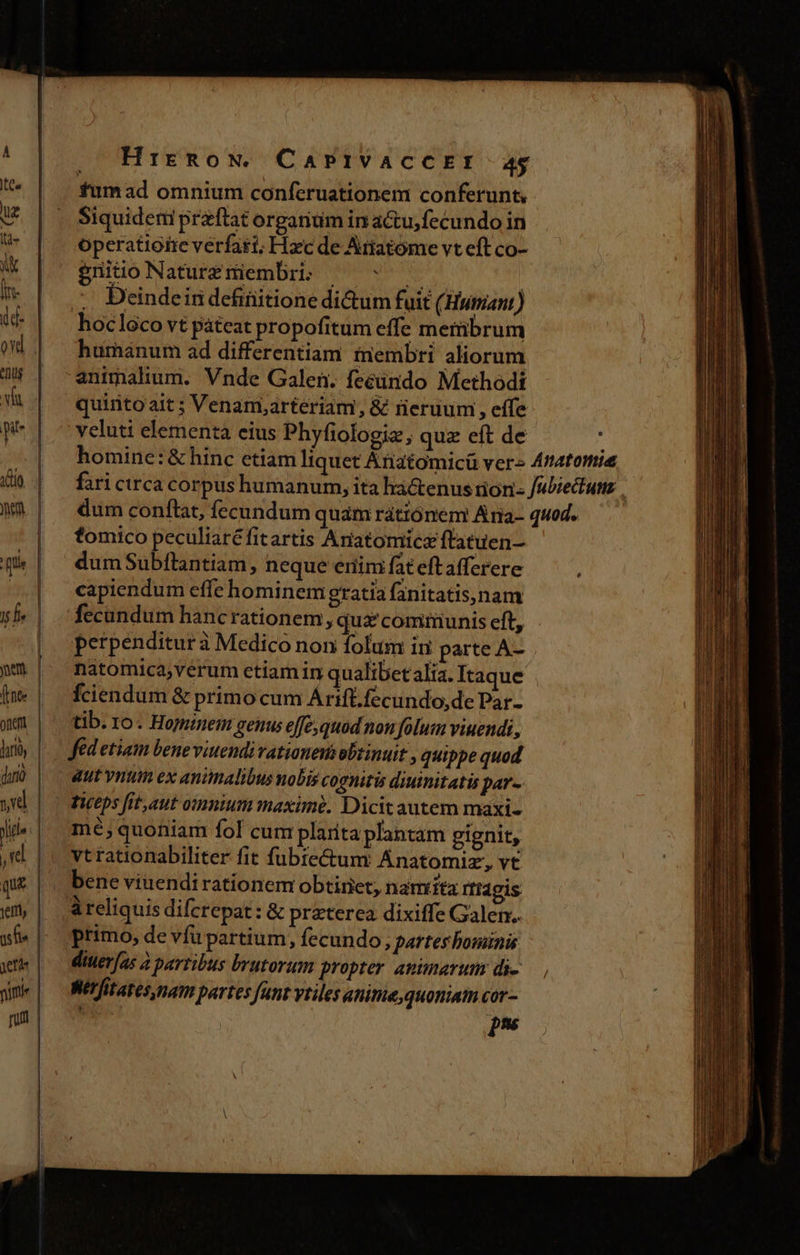 HIERON. CAPIVACCEI 45
tum ad omnium conſeruationem conferunt.
Siquidem præſtat organum in actu, ſecundo in
operatione verſari. Hæc de Anatome vt eſt co-
gnitio Naturæ membri.
Deinde in definitione dictum fuit (Humani)
hoc loco vt pateat propoſitum eſſe membrum
humanum ad differentiam membri aliorum
animalium. Vnde Galen. ſecundo Methodi
quinto ait; Venam, arteriam, & neruum, eſſe
veluti elementa eius Phyſiologiæ, quæ eſt de
homine: & hinc etiam liquet Anatomicū ver- Anatomiæ
ſari circa corpus humanum, ita hactenus non- ſubiectum
dum conſtat, ſecundum quam rationem Ana- quod.
tomico peculiarē fit artis Anatomicæ ſtatuen-
dum Subſtantiam, neque enim ſat eſt aſſerere
capiendum eſſe hominem gratia ſanitatis, nam
ſecundum hanc rationem, quæ communis eſt,
perpenditur à Medico non ſolum in parte A-
natomica, verum etiam in qualibet alia. Itaque
ſciendum & primo cum Ariſt. ſecundo, de Par-
tib. 10. Hominem genus eſſe, quod non ſolum viuendi,
ſed etiam bene viuendi rationem obtinuit, quippe quod
aut vnum ex animalibus nobis cognitis diuinitatis par-
ticeps ſit, aut omnium maximè. Dicit autem maxi-
mè, quoniam ſol cum planta plantam gignit,
vt rationabiliter fit ſubiectum Anatomiæ, vt
bene viuendi rationem obtinet, nam ita magis
à reliquis diſcrepat: & præterea dixiſſe Galen.
primo, de vſu partium, ſecundo, partes hominis
diuerſas à partibus brutorum propter animarum di-
uerſitates, nam partes ſunt vtiles animæ, quoniam cor-
pus